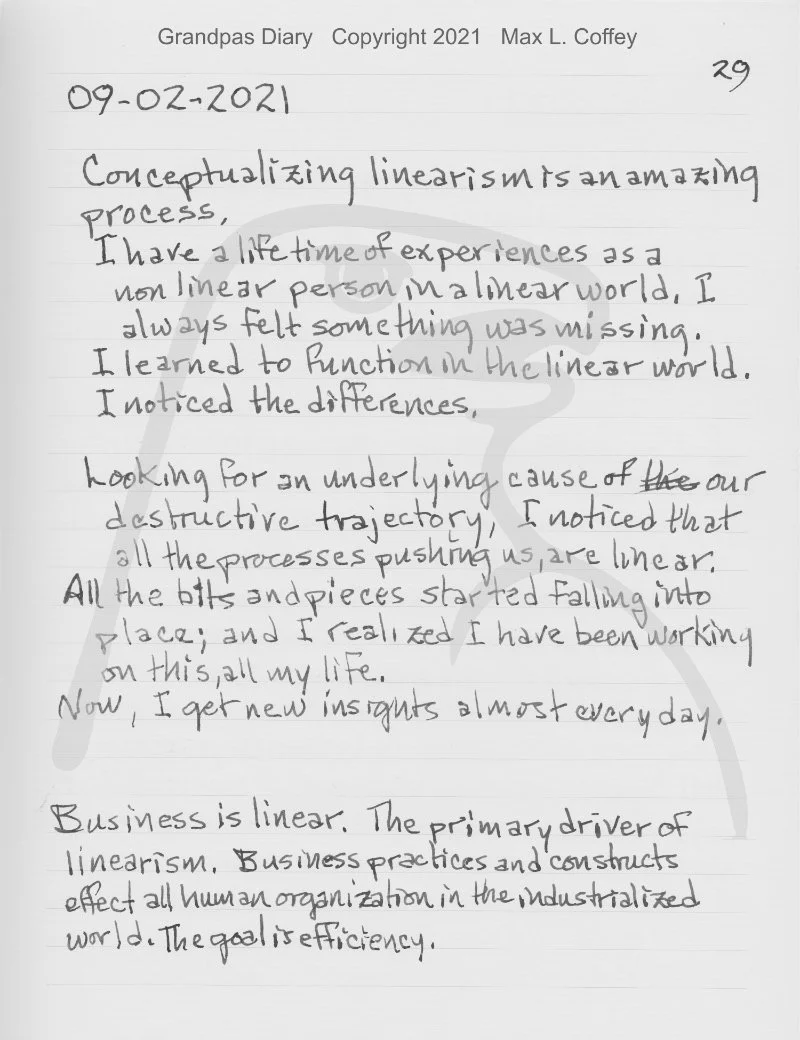 Grandpas Diary Copyright 2021 Max L. Coffey
29
09-02-2021
Conceptualizing linearism is an amazing
process,
I have a lifetime of experiences as a
non linear person in a linear world. I
always felt something was missing.
I learned to function in the linear world.
I noticed the differences.
Looking for an underlying cause of the our
destructive trajectory, I noticed that
all the processes pushing us, are linear.
All the bits and pieces started falling into
place; and I realized I have been working
on this, all my life.
Now, I get new insights almost every day.
Business is linear. The primary driver of
linearism. Business practices and constructs
effect all human organization in the industrialized
world. The goal is efficiency.